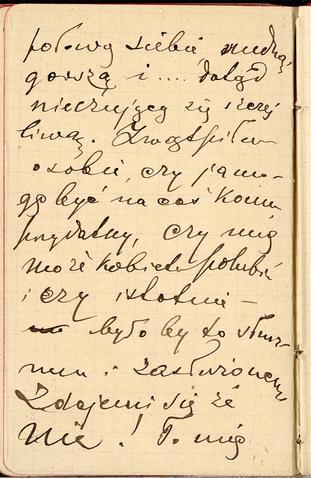 połowę siebie nudną,
gorszą i .... dotąd
nieczującej się szczę
liwą. Zwątpiłem
o sobie, czy ja mo-
gę być na coś komu
przydatny, czy mię
może kobieta polubić
i czy istotnie –
było by to słusz-
nem i zasłużonem
Zdaje mi się że
Nie! To mię